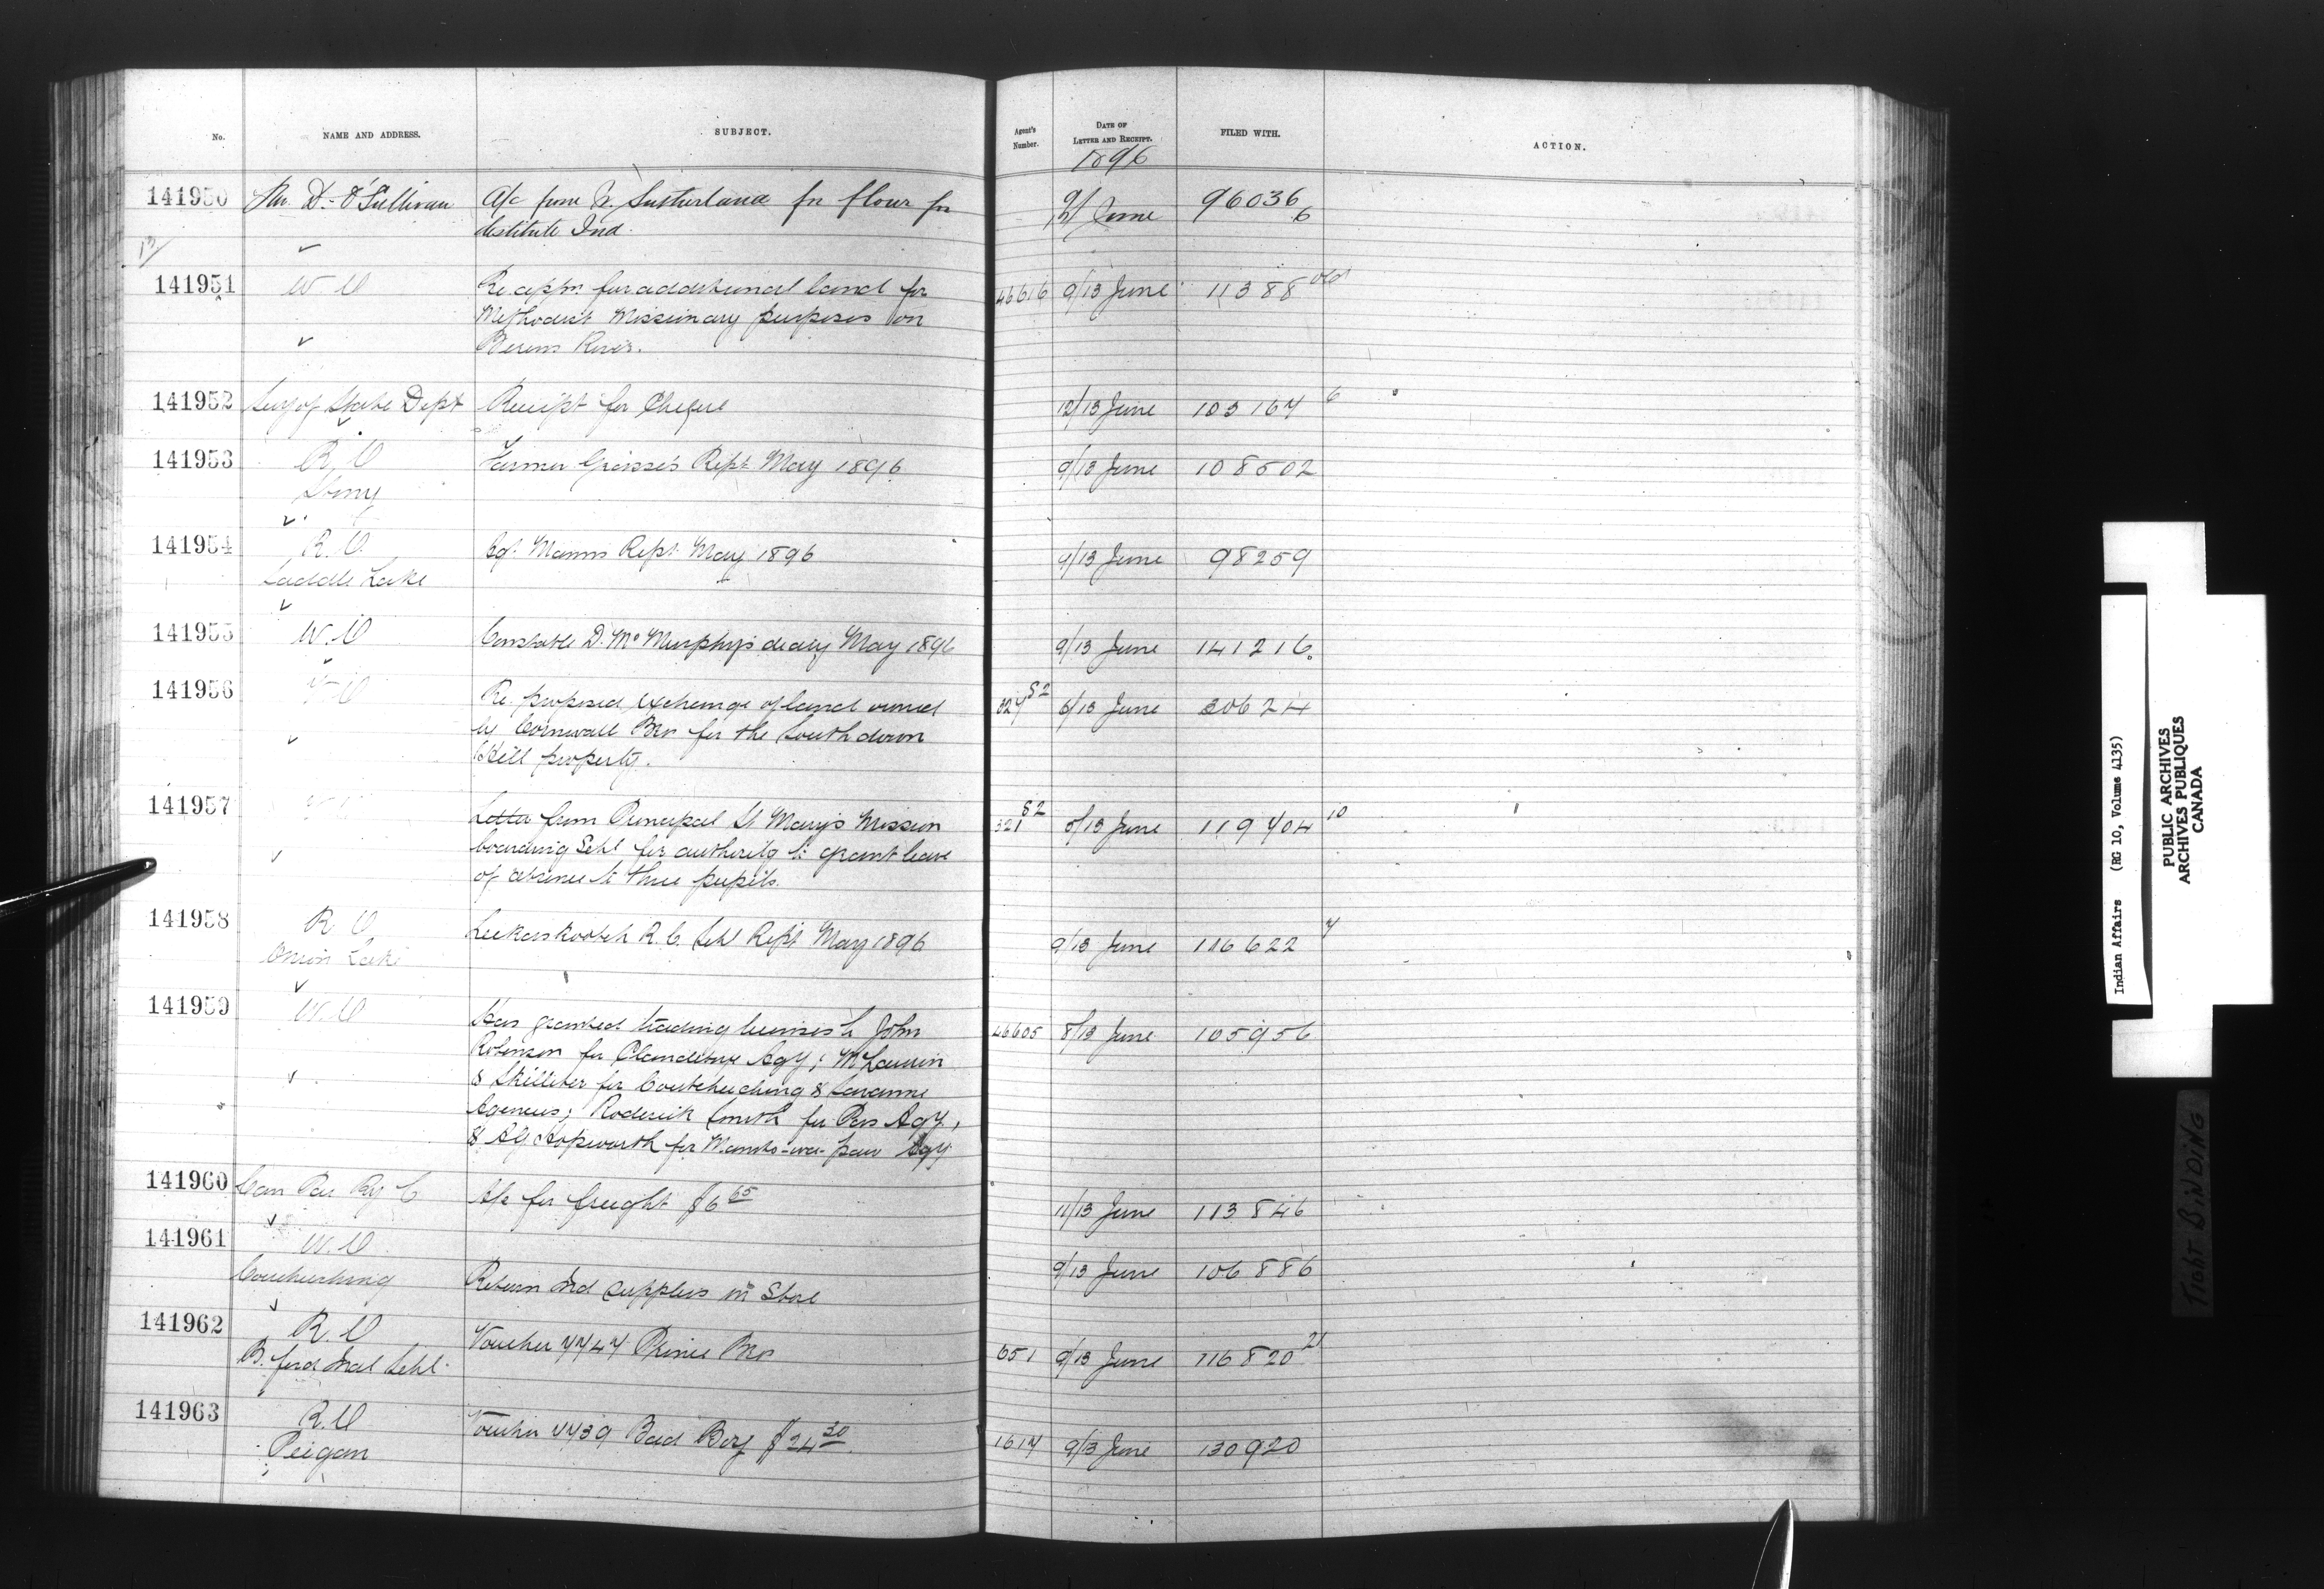 No. NAME AND ADDRESS. SUBJECT. Agent's Number. DATE OF LETTER AND RECEIPT. FILED WITH. ACTION.
1896
141950 D. O'Sullivan A/c from Sutherland for flour for 9/ June 96036 6
destitute Ind.
13/
141951 W.O Re appn for additional land for 46616 9/13 June 11388 old
Methodist Missionary purposes on
Berens River.
141952 Secy of State Dept Receipt for Cheque 12/13 June 103167 6
141953 R.O Farmer Grasse's Rept May 1896 9/13 June 108502
Stony
141954 R.O. Agt. Manns Rept May 1896 9/13 June 98259
Saddle Lake
141955 W.O Constable D. McMurphys diary May 1896 9/13 June 141216
141956 V-O Re. proposed exchange of land owned 327 82 6/13 June 30624
by Cornwall Bro for the South down
Hill property.
141957 Letter from Principal St Mary's Mission 321 82 5/13 June 119704 10
boarding Schl for authority to grant leave
of absence to three pupils.
141958 R.O R.C. Schl Rept May 1896 9/13 June 116622 7
Onion Lake
141959 W.O Has granted trading licenses to John 46605 8/13 June 105956
Robinson for Clandeboye Agy; McLaurin
& Skilliter for Coutcheeching & Savanne
Agencies; Roderick Smith for Pas Agy.
& A.G. Hopworth for Manito-wa-paw Agy.
141960 Can Pac Ry C A/c for freight $6 65 11/13 June 113846
141961 W.O 9/13 June 106886
Coucheeching Return Ind supplies in Store
141962 R.O Voucher 7747 Prince Bro 651 9/13 June 116820 21
B. ford Ind Schl.
141963 R.O Voucher 7739 Bad Boy $24 30 1617 9/13 June 130920
Peigan
Indian Affairs (RG 10, Volume 4135)
PUBLIC ARCHIVES
ARCHIVES PUBLIQUES
CANADA
TIGHT BINDING